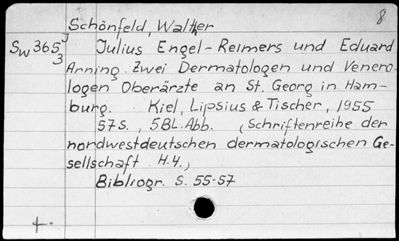 8
Schönfeld, Walther
Sw 365 J
3
Julius Engel-Reimers und Eduard
Arning. Zwei Dermatologen und Venero-
logen Oberärzte an St. Georg in Ham-
burg. Kiel, Lipsius & Tischer, 1955
57 S., 5 BL. Abb. (Schriftenreihe der
nordwestdeutschen dermatologischen Ge-
sellschaft H.4.)
Bibliogr. S. 55-57